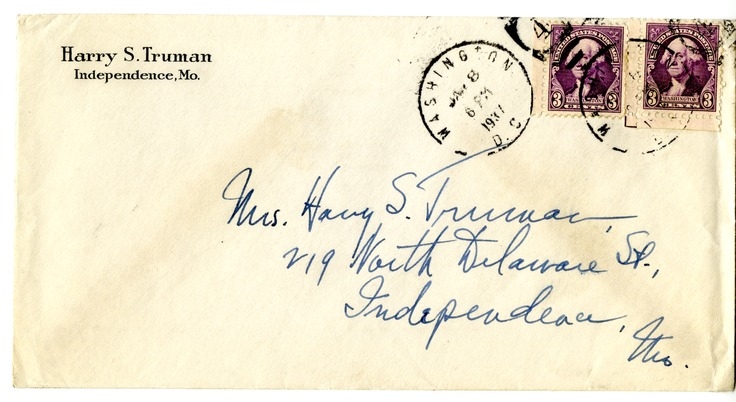 Harry S. Truman
Independence, Mo.
WASHINGTON
8
6 PM
1937
D.C.
UNITED STATES POSTAGE
3 WASHINGTON 3
CENTS
UNITED STATES POSTAGE
3 WASHINGTON 3
CENTS
Mrs. Harry S. Truman,
219 North Delaware St.,
Independence,
Mo.